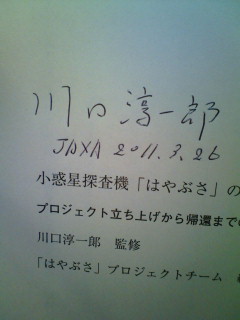 川口淳一郎
JAXA 2011.3.26
小惑星探査機「はやぶさ」の
プロジェクト立ち上げから帰還まで
川口淳一郎 監修
「はやぶさ」プロジェクトチーム